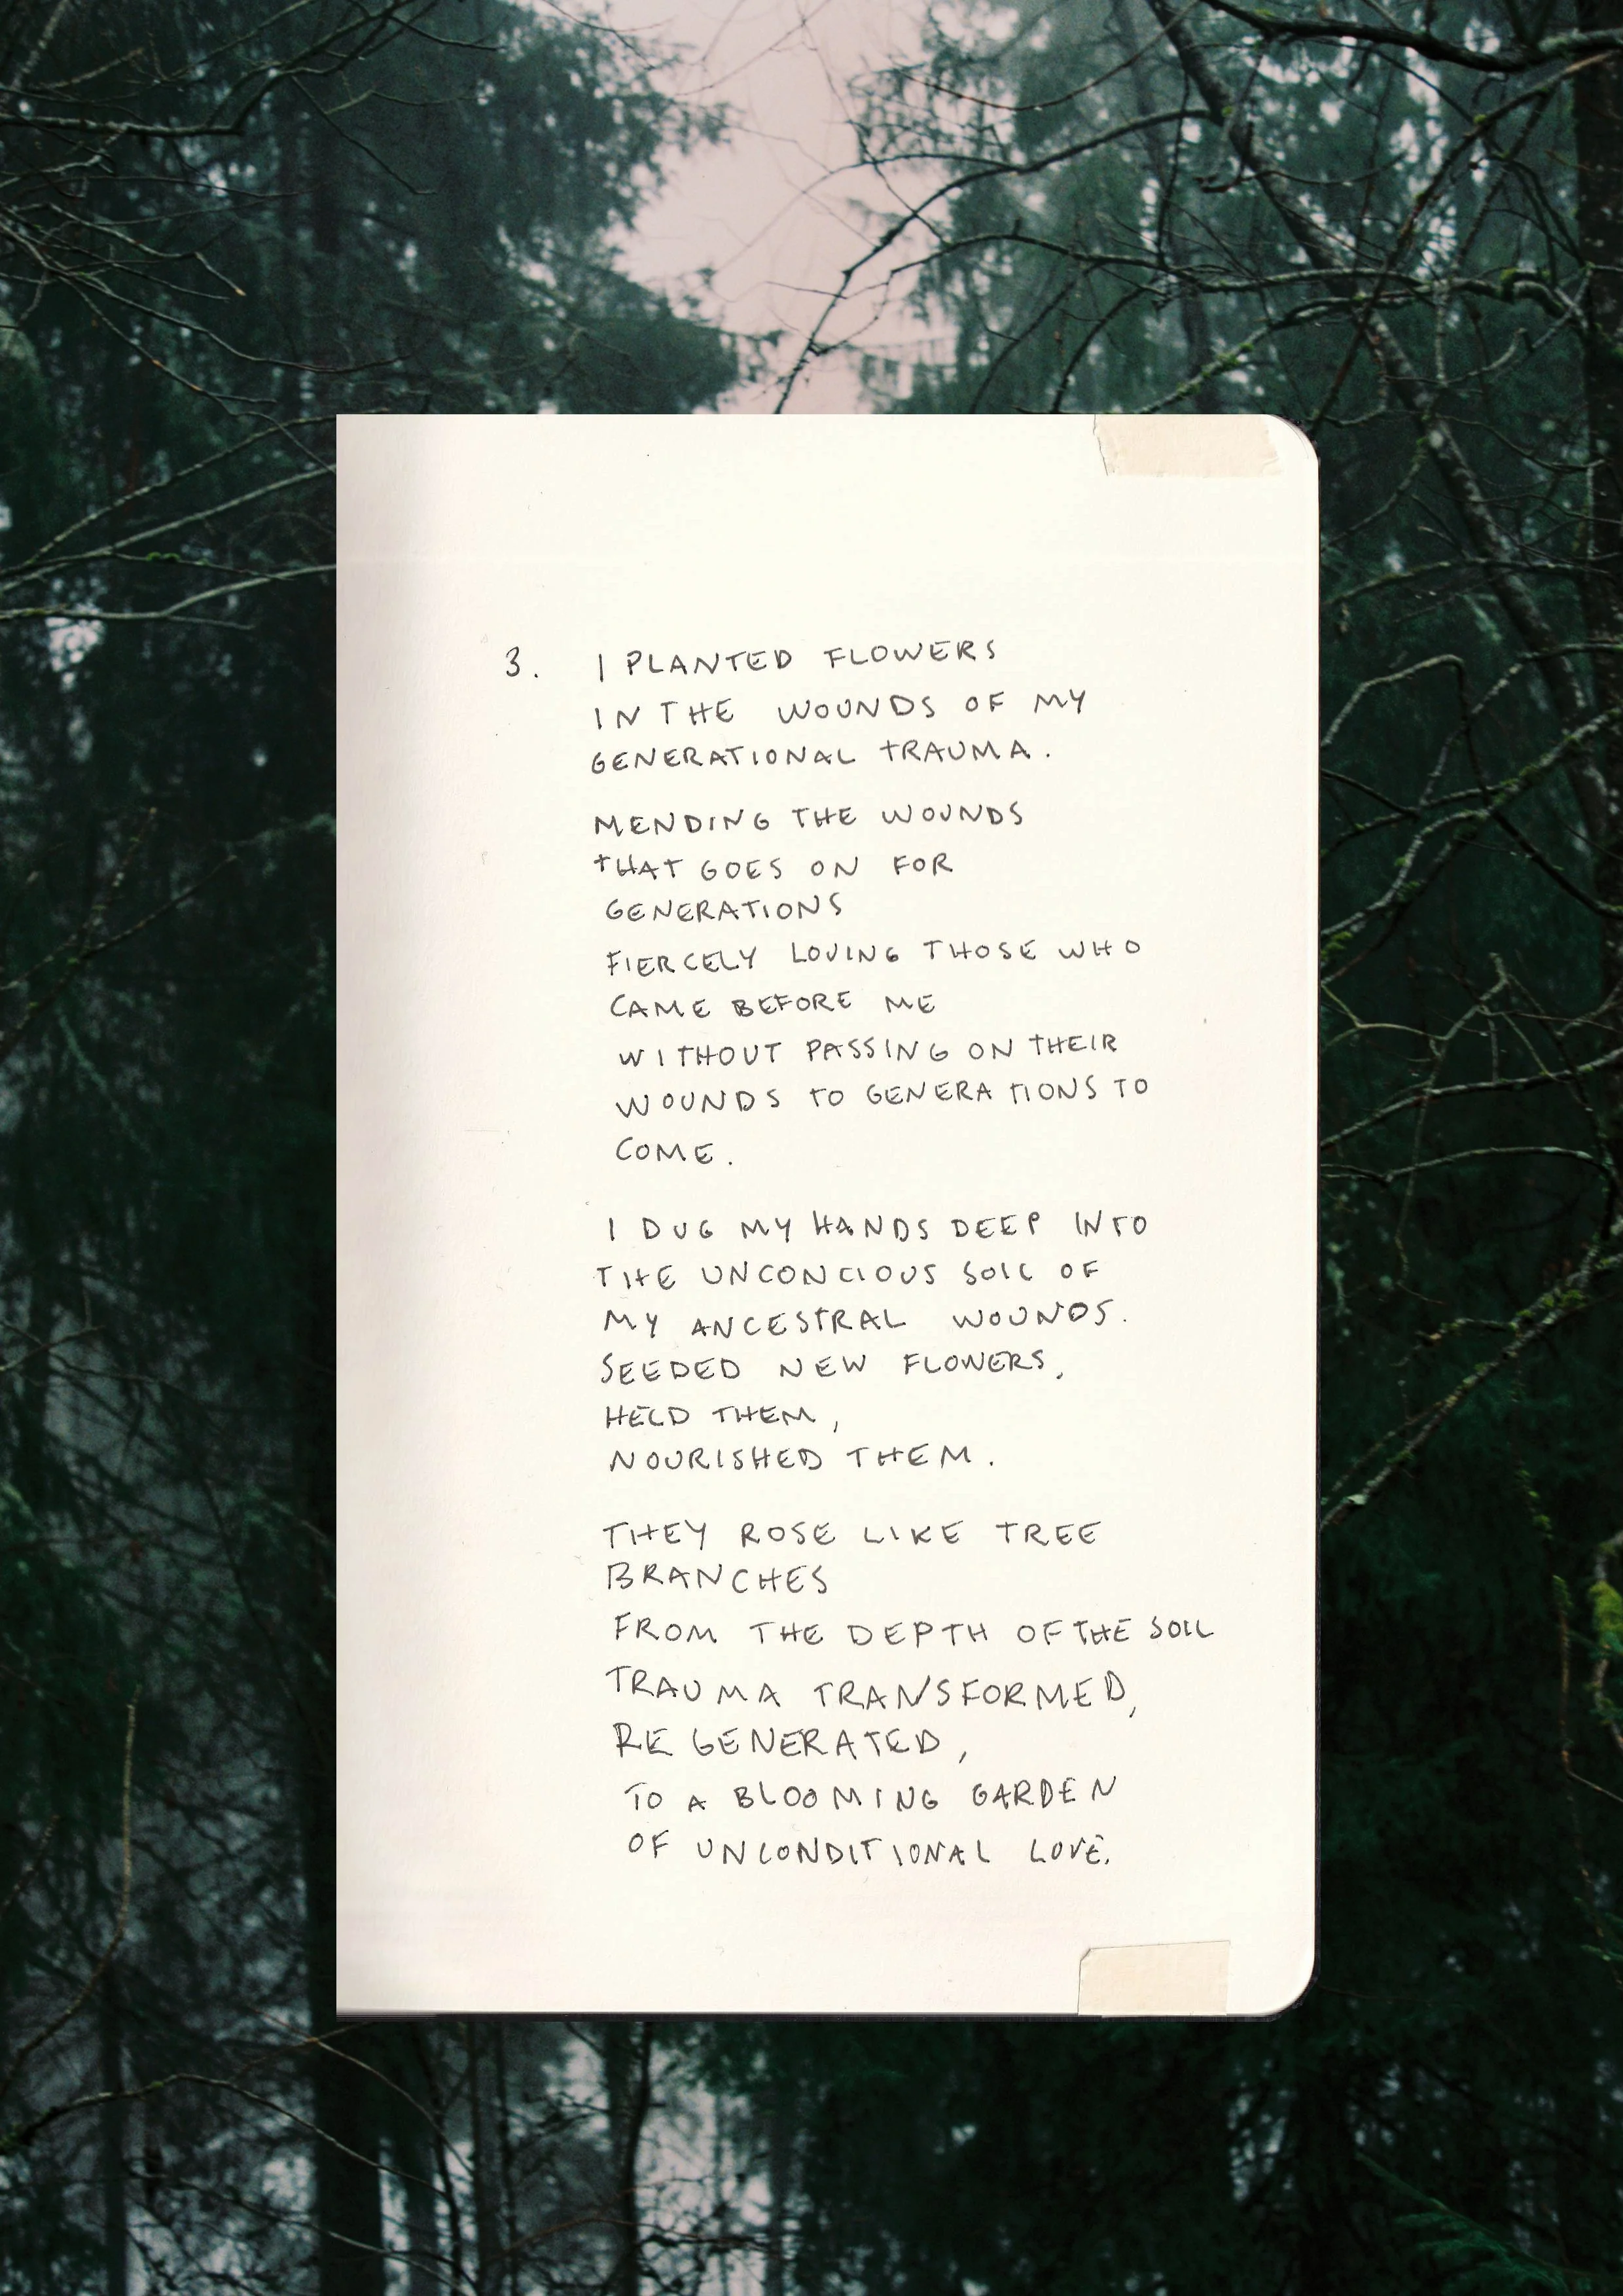 3. I PLANTED FLOWERS
IN THE WOUNDS OF MY
GENERATIONAL TRAUMA.
MENDING THE WOUNDS
THAT GOES ON FOR
GENERATIONS
FIERCELY LOVING THOSE WHO
CAME BEFORE ME
WITHOUT PASSING ON THEIR
WOUNDS TO GENERATIONS TO
COME.
I DUG MY HANDS DEEP INTO
THE UNCONCIOUS SOIL OF
MY ANCESTRAL WOUNDS.
SEEDED NEW FLOWERS,
HELD THEM,
NOURISHED THEM.
THEY ROSE LIKE TREE
BRANCHES
FROM THE DEPTH OF THE SOIL
TRAUMA TRANSFORMED,
RE GENERATED,
TO A BLOOMING GARDEN
OF UNCONDITIONAL LOVE.